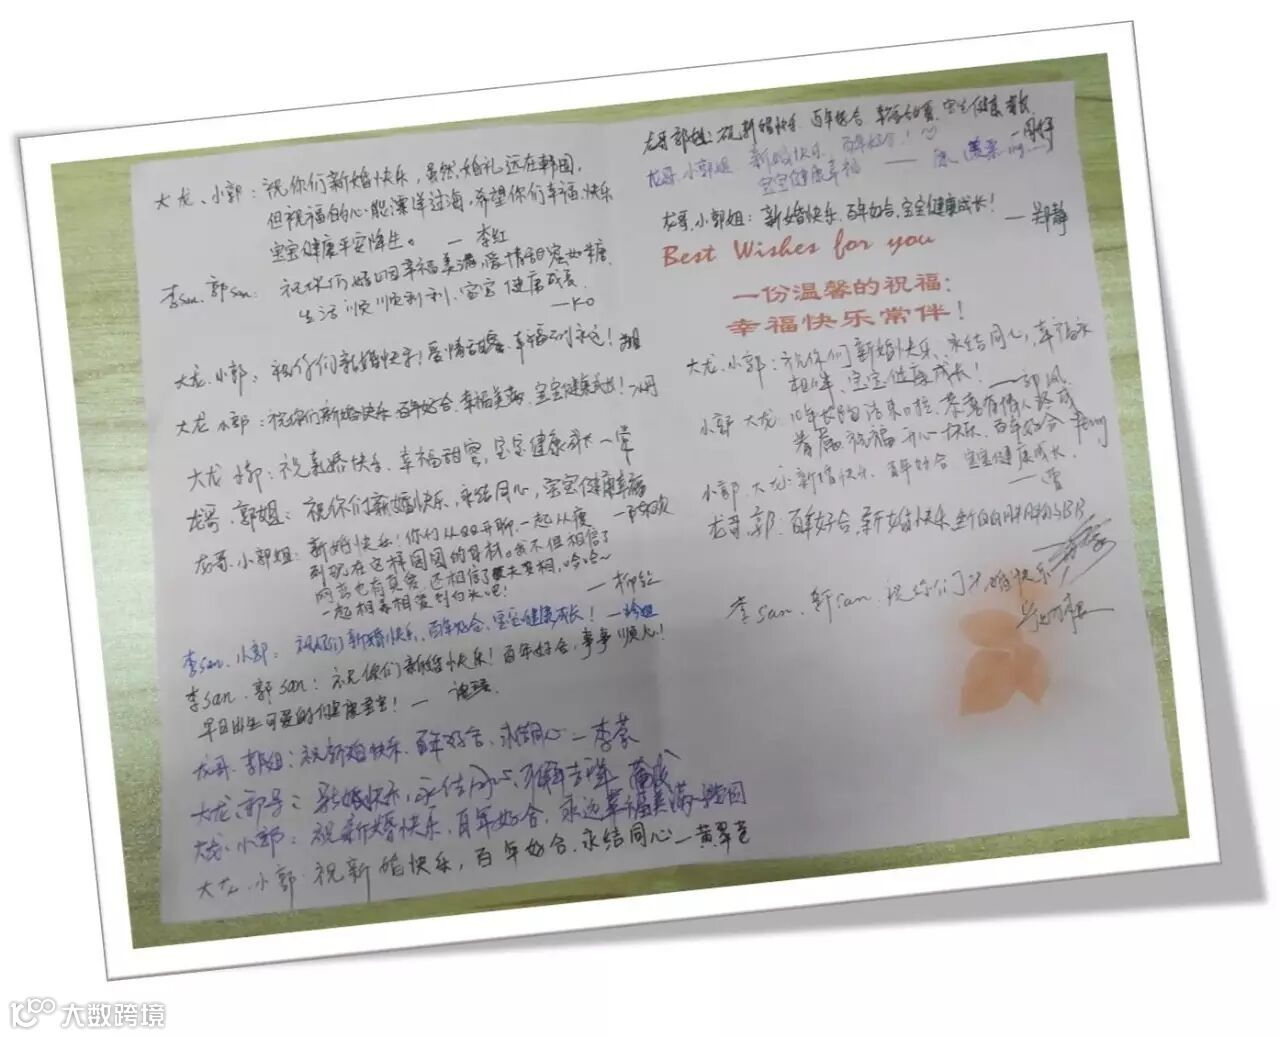 大龙、小郭：祝你们新婚快乐，虽然婚礼远在韩国，
但祝福的心能漂洋过海，希望你们幸福、快乐
宝宝健康平安降生。 — 李红
李san、郭san： 祝你们婚姻幸福美满，爱情甜蜜如糖
生活顺顺利利、宝宝健康成长
—KO
大龙、小郭：祝你们新婚快乐！爱情甜蜜、幸福永远！
大龙、小郭：祝你们新婚快乐、百年好合、幸福美满、宝宝健康成长！
大龙、小郭：祝新婚快乐、幸福甜蜜，宝宝健康成长 —常
龙哥、郭姐：祝你们新婚快乐，永结同心，宝宝健康幸福
龙哥、小郭姐：新婚快乐！你们从QQ开聊，一起从瘦
到现在这样圆圆的身材。我不但相信了
网恋也有真爱，还相信了夫妻相，哈哈~
一起相亲相爱到白头吧！ —柳红
李san、小郭：祝你们新婚快乐、百年好合、宝宝健康成长！
李san、郭san：祝你们新婚快乐！百年好合，事事顺心！
早日出生可爱的健康宝宝！ —
龙哥、郭姐：祝新婚快乐、百年好合、永结同心 —李蒙
大龙、郭导：新婚快乐，永结同心、
大龙、小郭：祝新婚快乐，百年好合，永远幸福美满
大龙、小郭 祝新婚快乐，百年好合、永结同心 —黄翠芝
龙哥郭姐：祝新婚快乐、百年好合、幸福甜蜜、宝宝健康成长
龙哥、小郭姐 新婚快乐、百年好合！♡
宝宝健康幸福 —
龙哥、小郭姐：新婚快乐、百年好合、宝宝健康成长！ —郑静
Best Wishes for you
一份温馨的祝福：
幸福快乐常伴！
大龙、小郭：祝你们新婚快乐、永结同心，幸福永
相伴、宝宝健康成长！ —郭凤
小郭 大龙：10年长跑结束啦，恭喜有情人终成
眷属，祝福开心快乐，百年好合
小郭、大龙：新婚快乐、百年好合 宝宝健康成长
—曹
龙哥、郭：百年好合，新婚快乐 生个白白胖胖的BB
李san、郭san、祝你们新婚快乐！
大数跨境